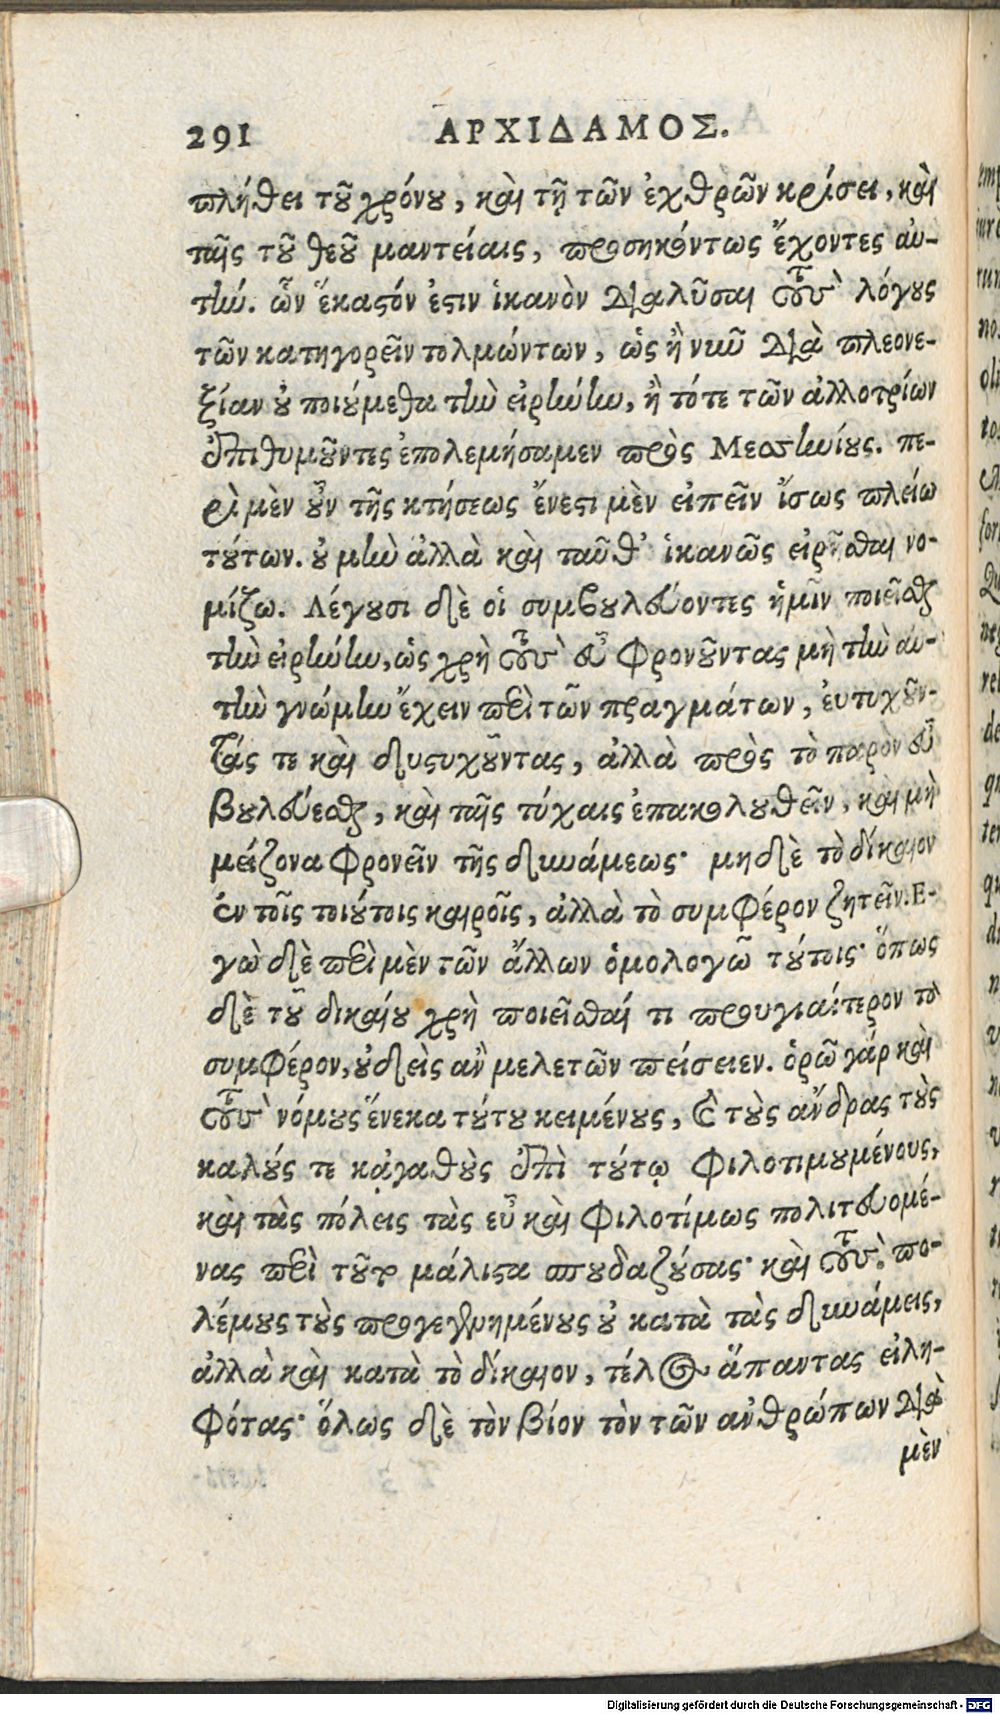 291 ΑΡΧΙΔΑΜΟΣ.
πλήθει τοῦ χρόνου, καὶ τῇ τῶν ἐχθρῶν κρίσει, καὶ
ταῖς τοῦ θεοῦ μαντείαις, προσηκόντως ἔχοντες αὐ-
τήν. ὧν ἕκαστόν ἐστιν ἱκανὸν διαλῦσαι τοὺς λόγους
τῶν κατηγορεῖν τολμώντων, ὡς ἢ νῦν διὰ πλεονε-
ξίαν οὐ ποιούμεθα τὴν εἰρήνην, ἢ τότε τῶν ἀλλοτρίων
ἐπιθυμοῦντες ἐπολεμήσαμεν πρὸς Μεσσηνίους. πε-
ρὶ μὲν οὖν τῆς κτήσεως ἔνεστι μὲν εἰπεῖν ἴσως πλείω
τούτων. οὐ μὴν ἀλλὰ καὶ ταῦθ' ἱκανῶς εἰρῆσθαι νο-
μίζω. Λέγουσι δὲ οἱ συμβουλεύοντες ἡμῖν ποιεῖσθαι
τὴν εἰρήνην, ὡς χρὴ τοὺς εὖ φρονοῦντας μὴ τὴν αὐ-
τὴν γνώμην ἔχειν περὶ τῶν πραγμάτων, ἐυτυχοῦν-
τάς τε καὶ δυστυχοῦντας, ἀλλὰ πρὸς τὸ παρὸν εὖ
βουλεύεσθαι, καὶ ταῖς τύχαις ἐπακολουθεῖν, καὶ μὴ
μείζονα φρονεῖν τῆς δυνάμεως· μηδὲ τὸ δίκαιον
ἐν τοῖς τοιούτοις καιροῖς, ἀλλὰ τὸ συμφέρον ζητεῖν. Ε-
γὼ δὲ περὶ μὲν τῶν ἄλλων ὁμολογῶ τούτοις· ὅπως
δὲ τοῦ δικαίου χρὴ ποιεῖσθαί τι προυργιαίτερον τὸ
συμφέρον, οὐδεὶς ἂν μελετῶν πείσειεν. ὁρῶ γάρ καὶ
τοὺς νόμους ἕνεκα τούτου κειμένους, καὶ τοὺς ἄνδρας τοὺς
καλούς τε κᾀγαθοὺς ἐπὶ τούτῳ φιλοτιμουμένους,
καὶ τὰς πόλεις τὰς εὖ καὶ φιλοτίμως πολιτευομέ-
νας περὶ τοῦτο μάλιστα σπουδαζούσας· καὶ τοὺς πο-
λέμους τοὺς προγεγενημένους οὐ κατὰ τὰς δυνάμεις,
ἀλλὰ καὶ κατὰ τὸ δίκαιον, τέλος ἅπαντας εἰλη-
φότας· ὅλως δὲ τὸν βίον τὸν τῶν ἀνθρώπων διὰ
μὲν
Digitalisierung gefördert durch die Deutsche Forschungsgemeinschaft - DFG